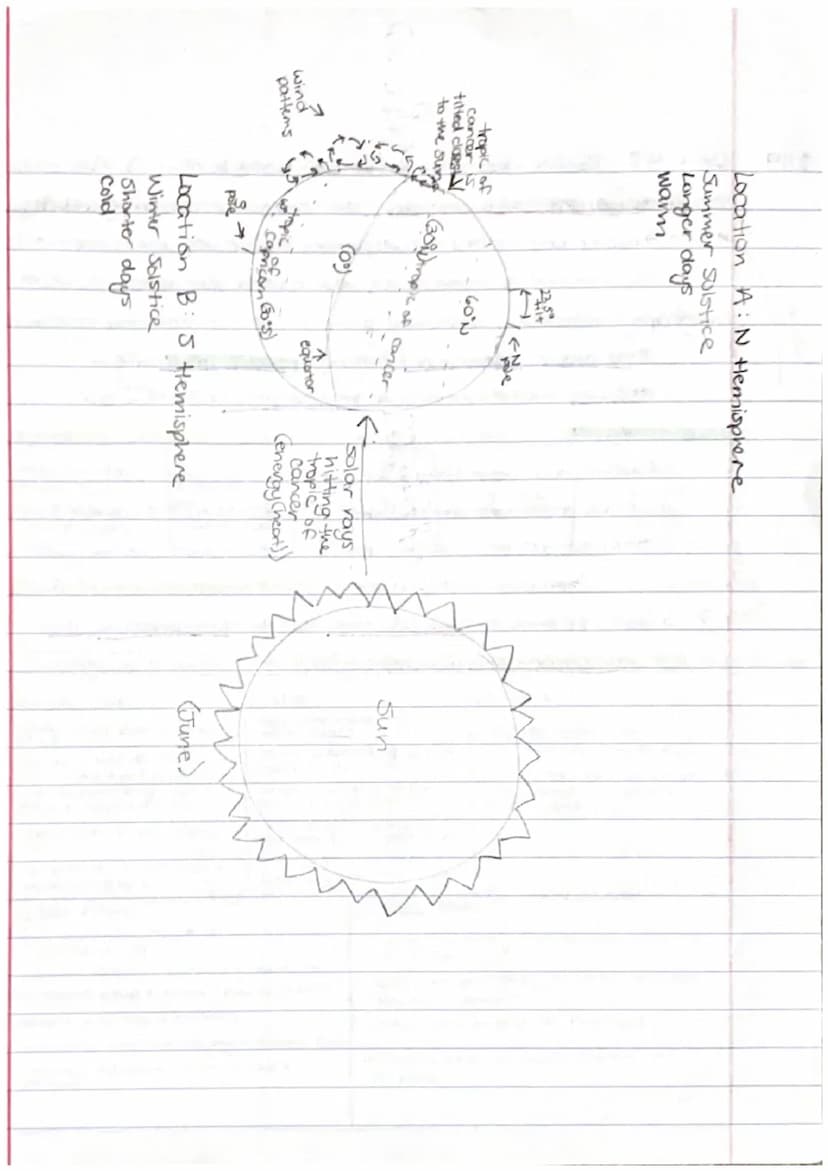 Location A: N Hemisphere
Summer Solstice
Longer days
Warm
23.5°
tilt
← N
pole
tropic of
cancer is
tilted closest
to the sun
60°N
(30°N) tropic of cancer
(0°)
equator
tropic of capricorn (30°S)
S
pole →
wind
patterns
solar rays
hitting the
tropic of
cancer
(energy(heat))
Sun
(June)
Location B: S Hemisphere
Winter Solstice
Shorter days
Cold